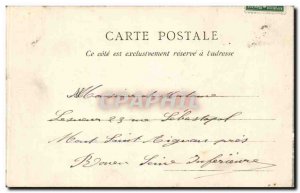 CARTE POSTALE
Ce côté est exclusivement réservé à l'adresse
Monsieur
23 rue Sébastopol
Mont Saint Aignan près
Rouen Seine Inférieure